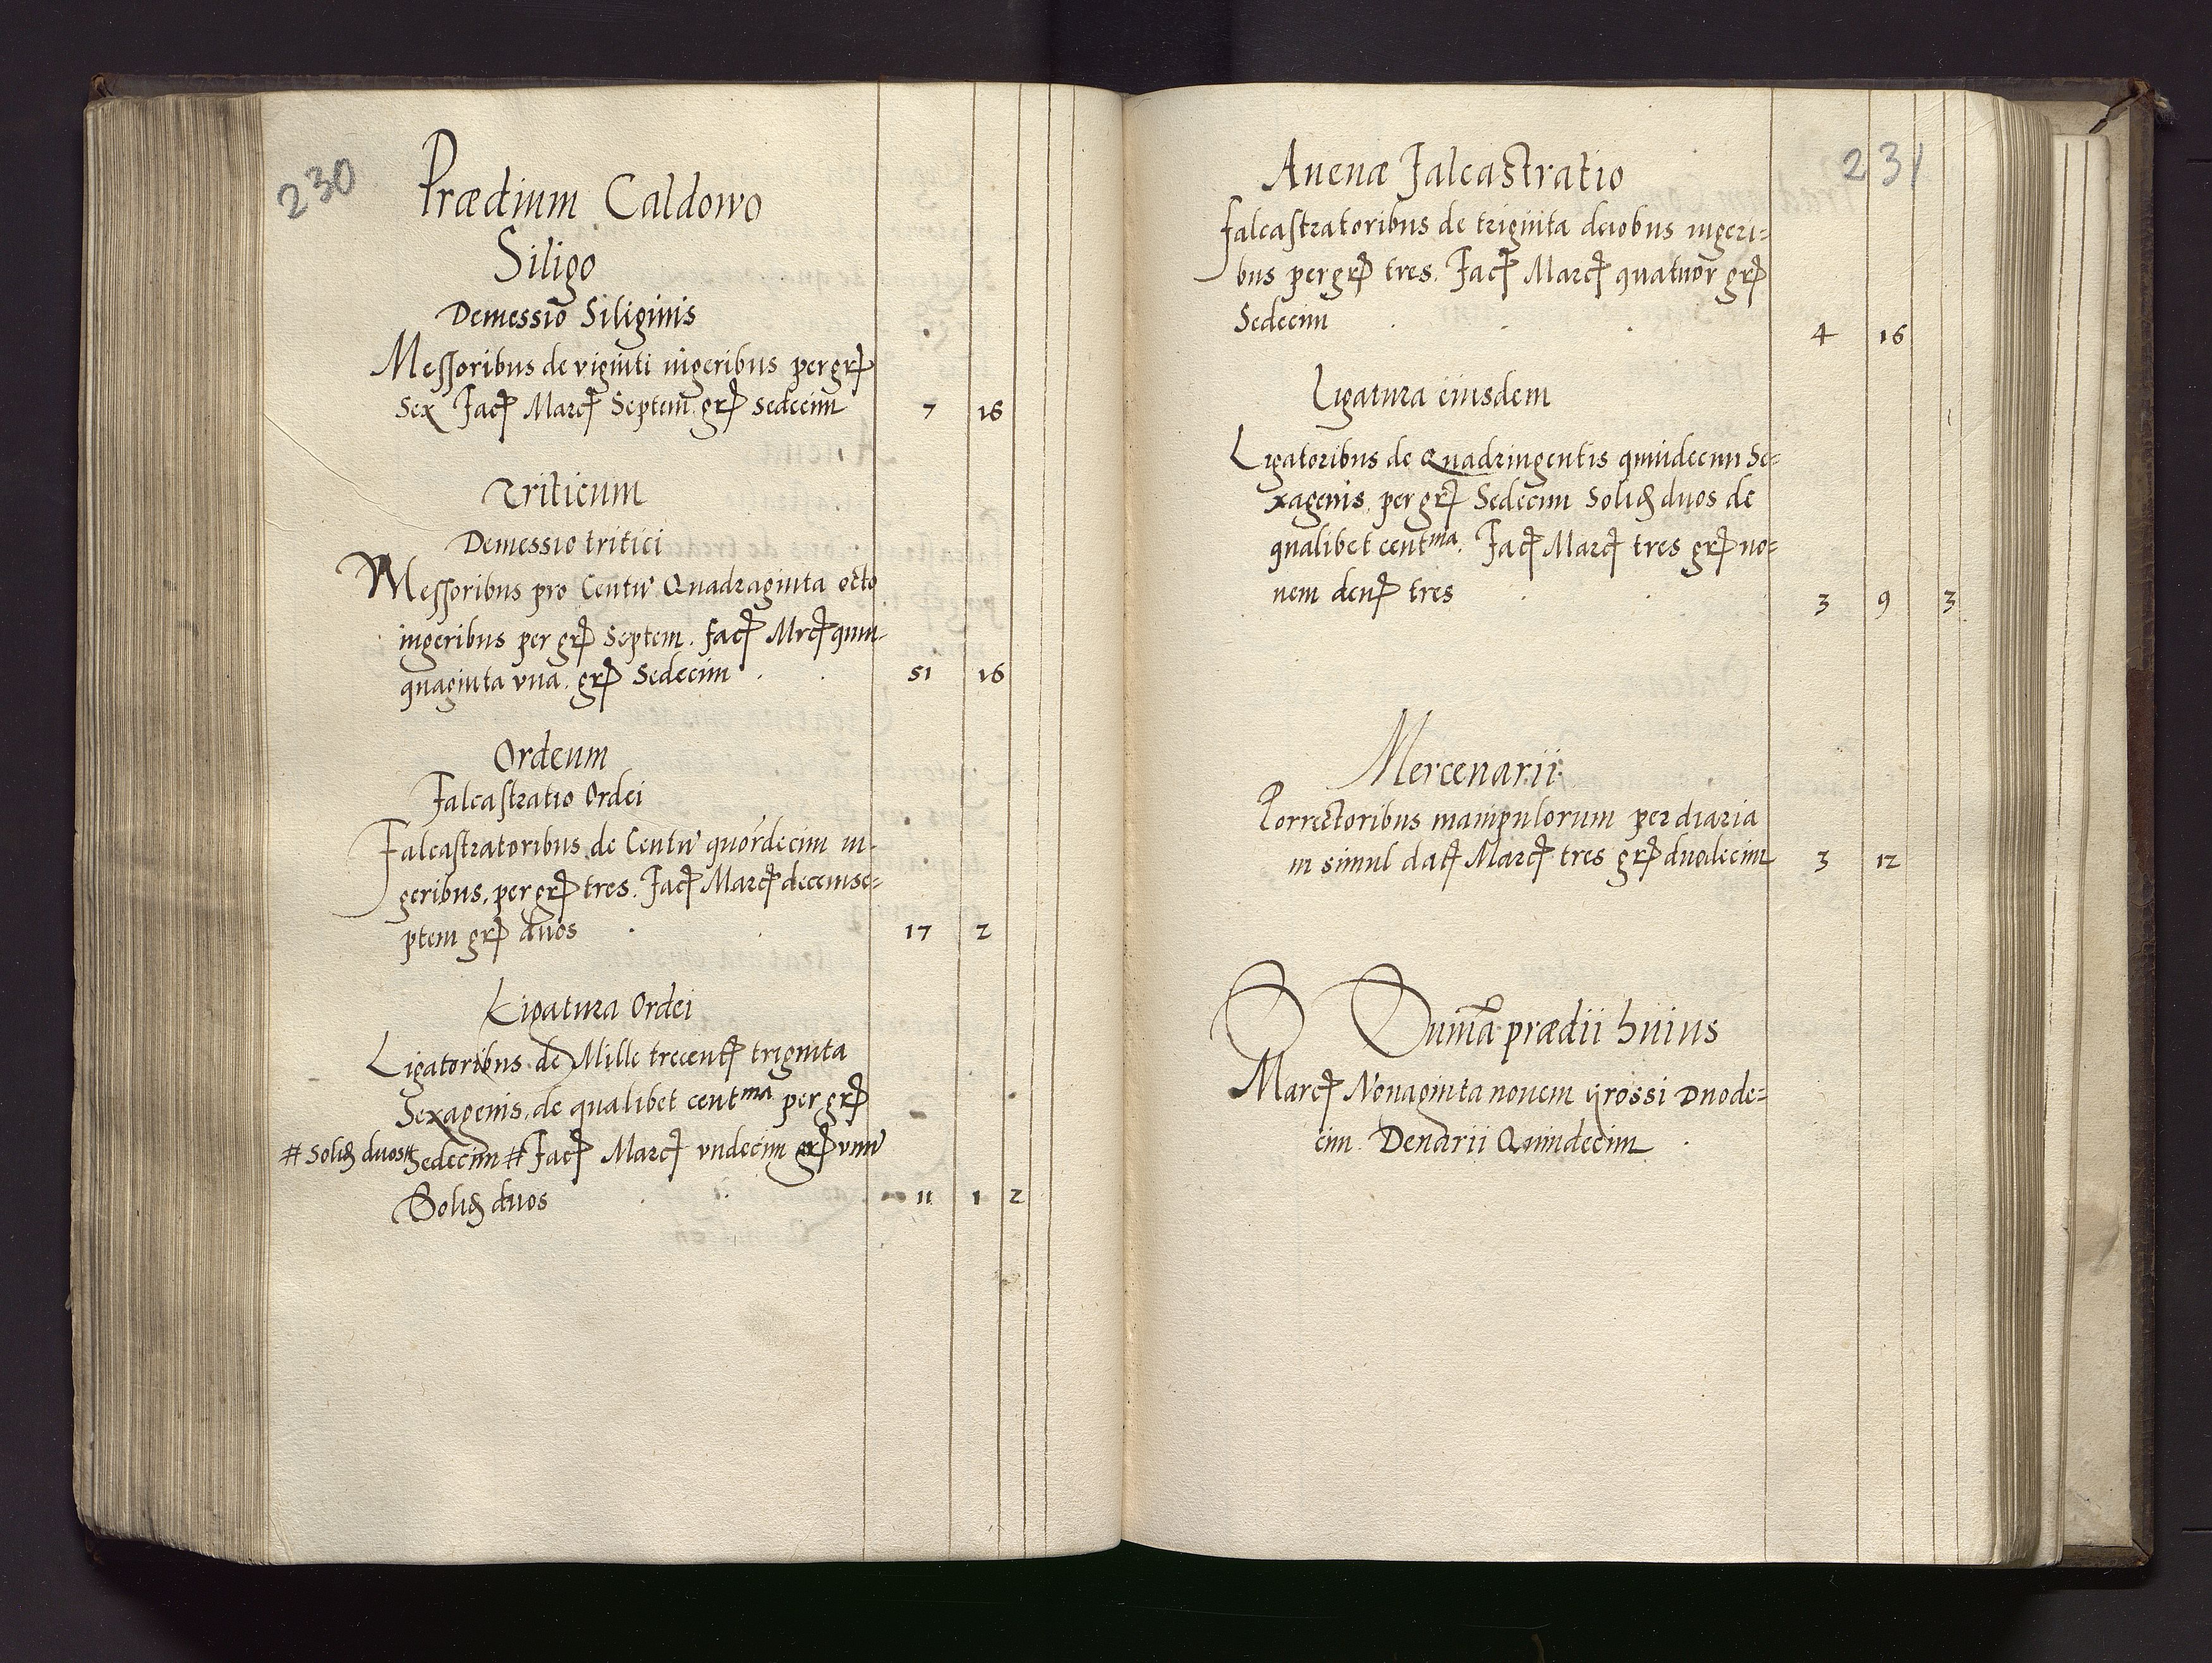 230
Prædium Caldowo
Siligo
Demessio Siliginis
Messoribus de viginti iugeribus per grꝭ
Sex Facꝭ Marcꝭ Septem grꝭ sedecim 7 16
Triticum
Demessio tritici
Messoribus pro Centũ Quadraginta octo
iugeribus per grꝭ Septem. facꝭ Mrcꝭ quin-
quaginta vna. grꝭ Sedecim 51 16
Ordeum
Falcastratio Ordei
Falcastratoribus de Centũ quordecim iu-
geribus, per grꝭ tres. Facꝭ Marcꝭ decemse=
ptem grꝭ duos 17 2
Ligatura Ordei
Ligatoribus de Mille trecentꝭ triginta
Sexagenis, de qualibet centma per grꝭ
# Solidꝭ duos # Sedecim # Facꝭ Marcꝭ vndecim grꝭ vnũ
Solidꝭ duos 11 1 2
231
Auenæ Falcastratio
falcastratoribus de triginta duobus iugeri=
bus per grꝭ tres. Facꝭ Marcꝭ quatuor grꝭ
Sedecim 4 16
Ligatura eiusdem
Ligatoribus de Quadringentis quindecim Se=
xagenis, per grꝭ Sedecim Solidꝭ duos de
qualibet centma. Facꝭ Marcꝭ tres grꝭ no=
uem denꝭ tres 3 9 3
Mercenarii
Porrectoribus manipulorum per diaria
in simul datꝭ Marcꝭ tres grꝭ duodecim 3 12
Summa prædii huius
Marcꝭ Nonaginta nouem grossi Duode=
cim Denarii Quindecim